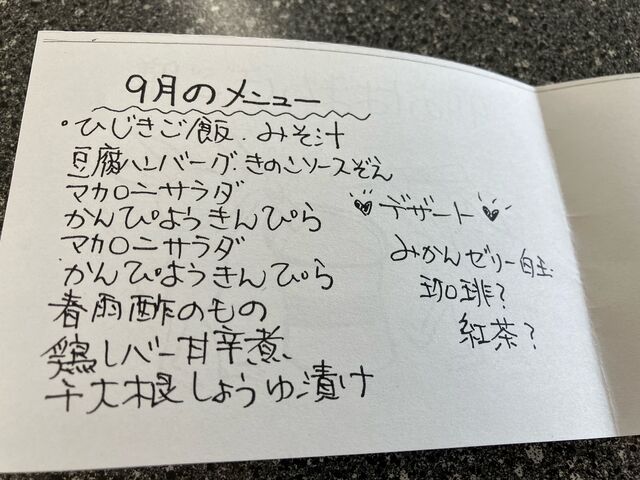 9月のメニュー
・ひじきご飯.みそ汁
豆腐ハンバーグ.きのこソースぞえ
マカロニサラダ
かんぴょうきんぴら
マカロニサラダ
かんぴようきんぴら
春雨酢のもの
鶏レバー甘辛煮
干大根しょうゆ漬け
デザート
みかんゼリー白玉
珈琲?
紅茶?